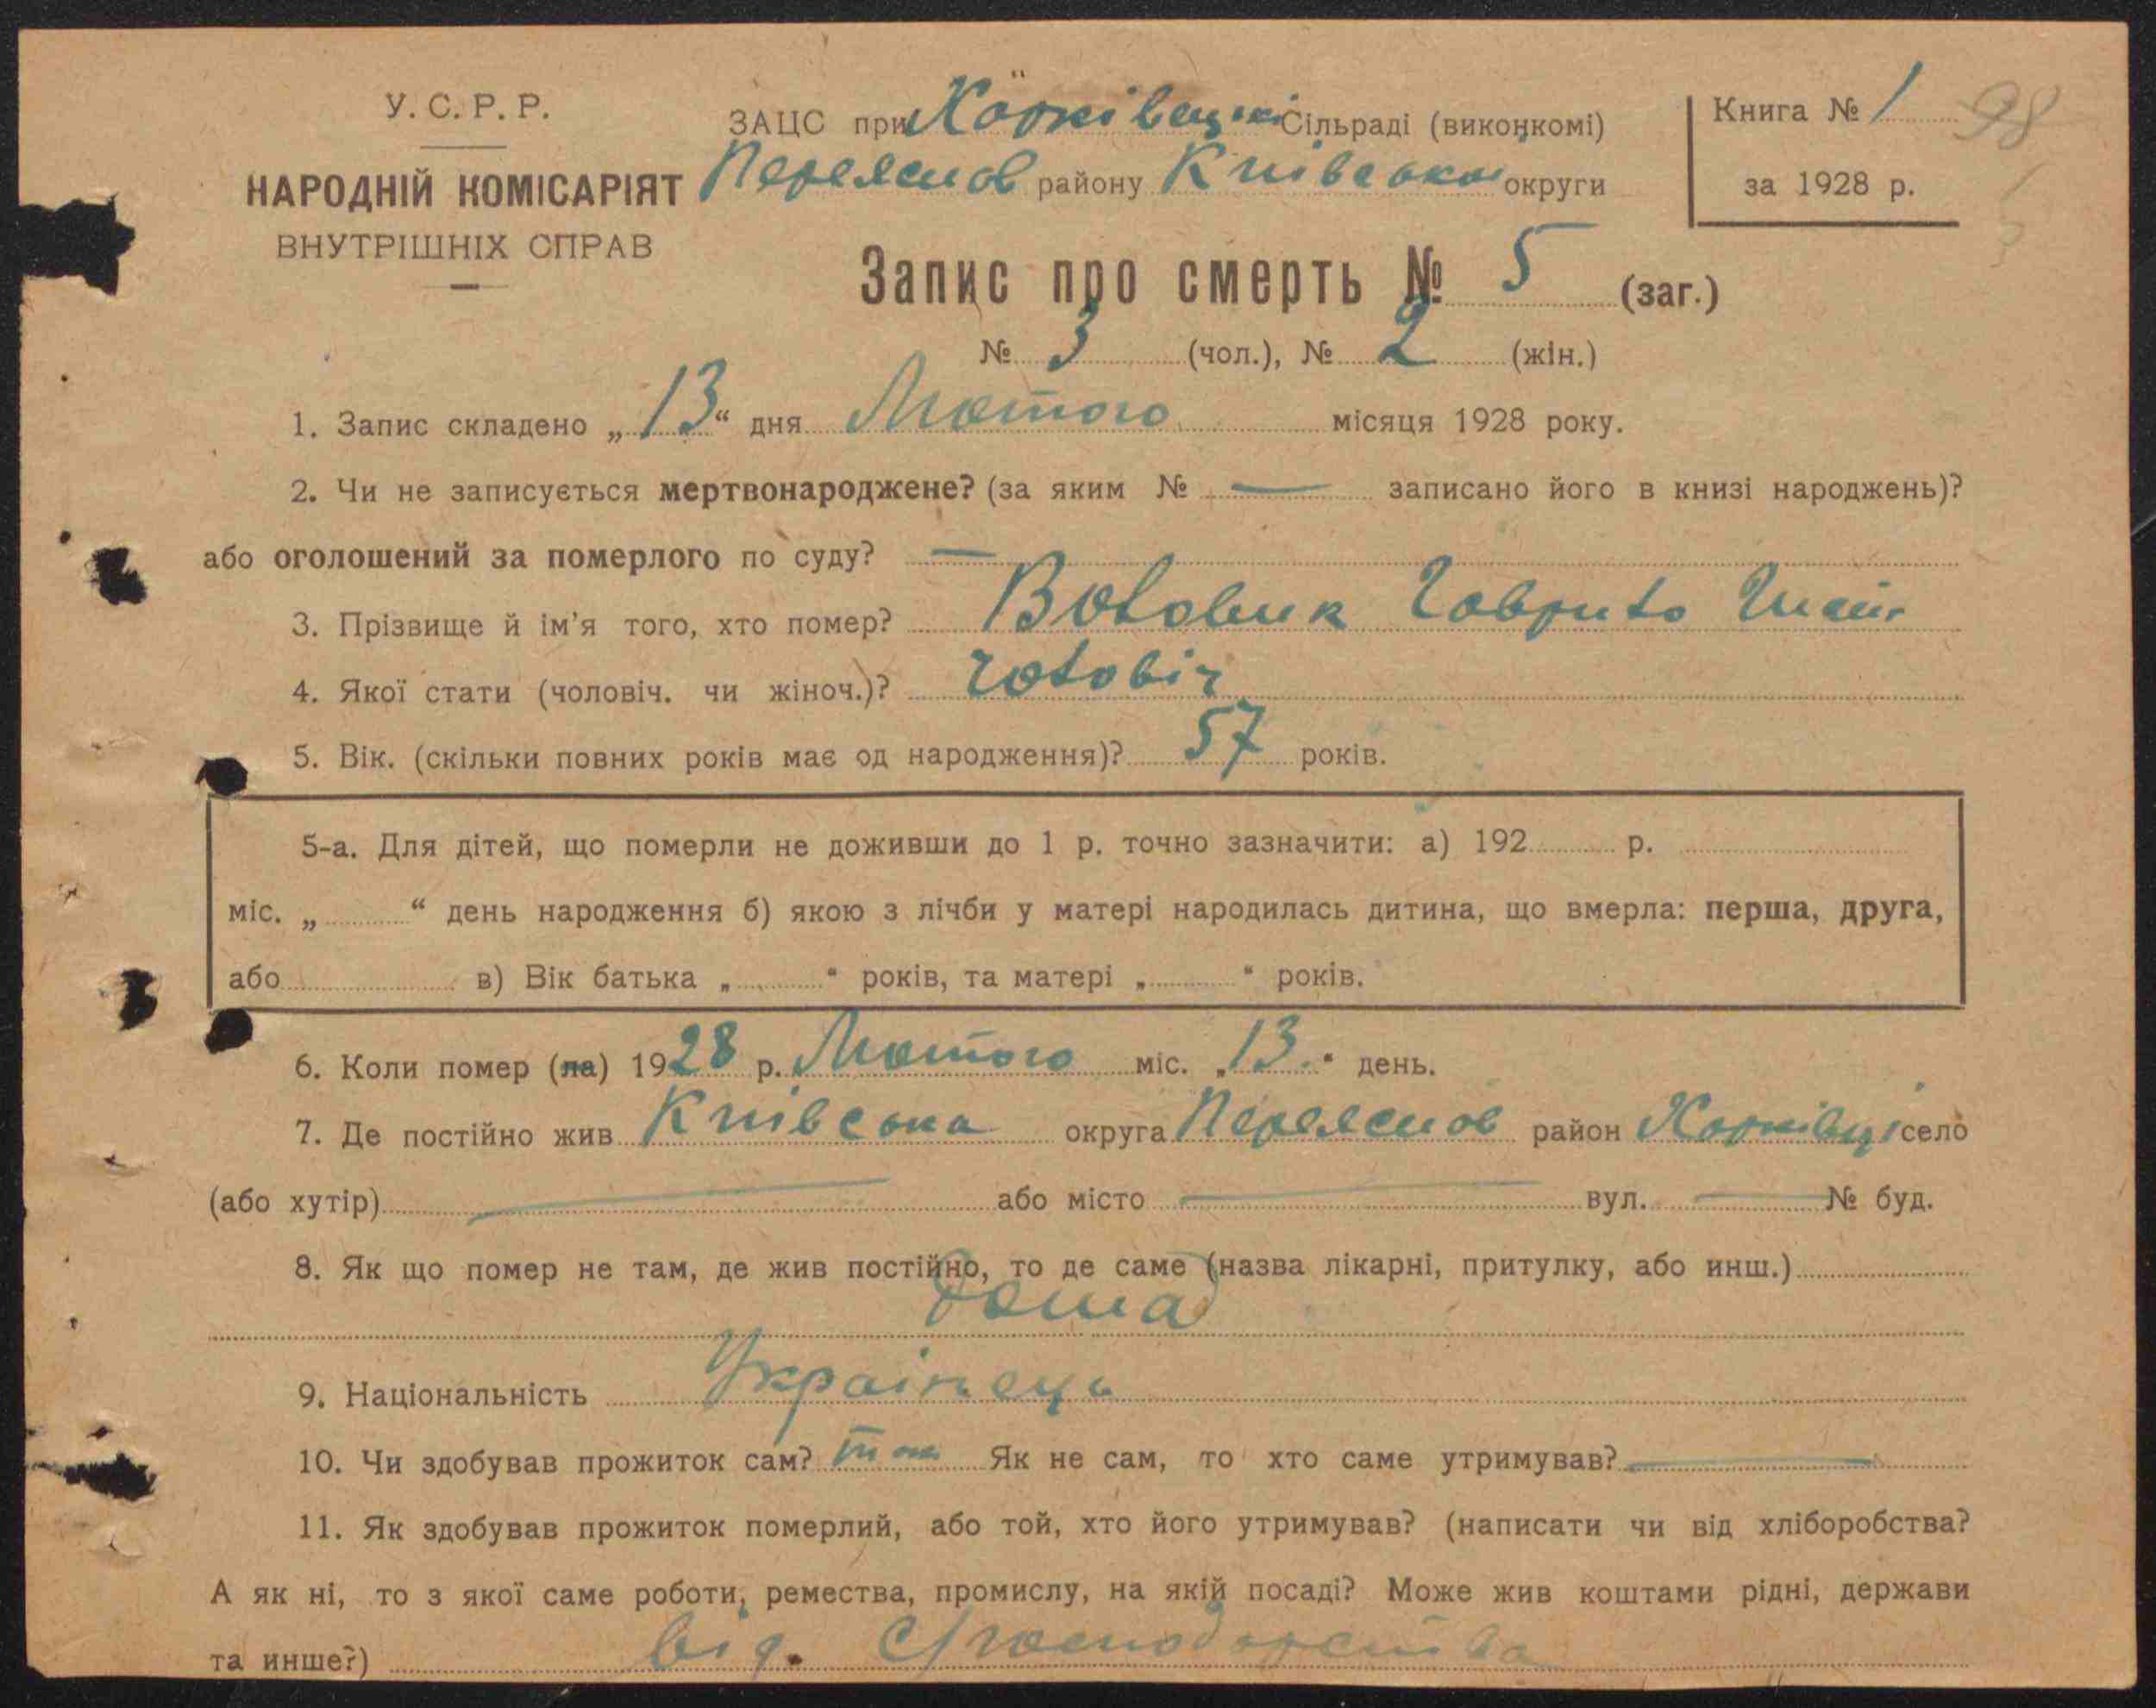 У. С. Р. Р.
НАРОДНІЙ КОМІСАРІЯТ
ВНУТРІШНІХ СПРАВ
ЗАЦС при Харківецькі Сільраді (виконкомі)
Переяслов району Київської округи
Книга № 1
98
за 1928 р.
Запис про смерть № 5 (заг.)
№ 3 (чол.), № 2 (жін.)
1. Запис складено „13“ дня Лютого місяця 1928 року.
2. Чи не записується мертвонароджене? (за яким № — записано його в книзі народжень)?
або оголошений за померлого по суду? —
3. Прізвище й ім'я того, хто помер? Гаврило
4. Якої стати (чоловіч. чи жіноч.)? чоловіч
5. Вік. (скільки повних років має од народження)? 57 років.
5-а. Для дітей, що померли не доживши до 1 р. точно зазначити: а) 192 р.
міс. „ “ день народження б) якою з лічби у матері народилась дитина, що вмерла: перша, друга,
або в) Вік батька „ “ років, та матері „ “ років.
6. Коли помер (ла) 1928 р. Лютого міс. „13“ день.
7. Де постійно жив Київська округа Переяслов район Харківці село
(або хутір) — або місто — вул. — № буд.
8. Як що помер не там, де жив постійно, то де саме (назва лікарні, притулку, або инш.)
Дома
9. Національність Українець
10. Чи здобував прожиток сам? так Як не сам, то хто саме утримував? —
11. Як здобував прожиток померлий, або той, хто його утримував? (написати чи від хліборобства?
А як ні, то з якої саме роботи, ремества, промислу, на якій посаді? Може жив коштами рідні, держави
та инше?) від.